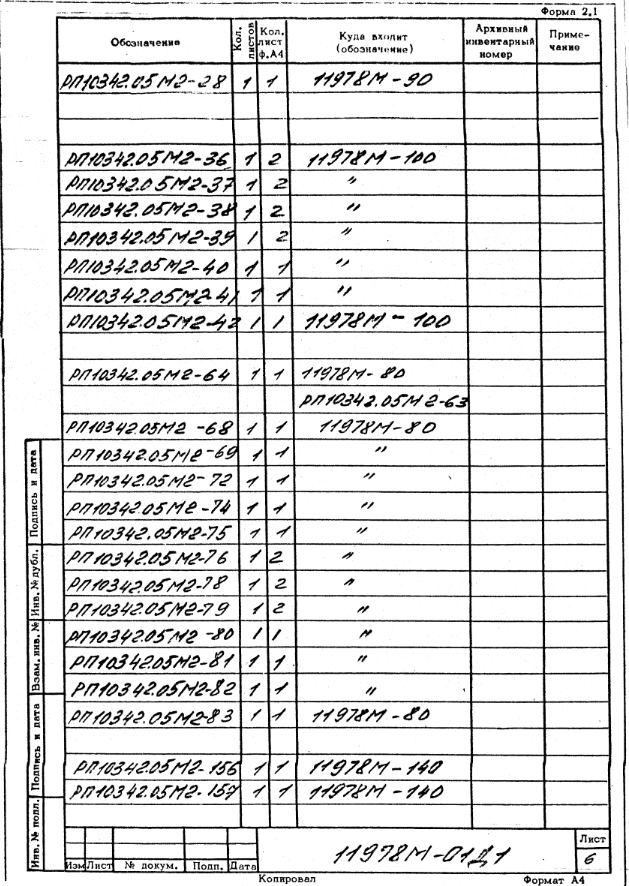 Форма 2.1
Обозначение Кол. листов Кол. лист ф.А4 Куда входит (обозначение) Архивный инвентарный номер Приме-чание
РП10342.05М2-28 1 1 11978М-90
РП10342.05М2-36 1 2 11978М-100
РП10342.05М2-37 1 2 "
РП10342.05М2-38 1 2 "
РП10342.05М2-39 1 2 "
РП10342.05М2-40 1 1 "
РП10342.05М2-41 1 1 "
РП10342.05М2-42 1 1 11978М-100
РП10342.05М2-64 1 1 11978М-80
РП10342.05М2-63
РП10342.05М2-68 1 1 11978М-80
РП10342.05М2-69 1 1 "
РП10342.05М2-72 1 1 "
РП10342.05М2-74 1 1 "
РП10342.05М2-75 1 1 "
РП10342.05М2-76 1 2 "
РП10342.05М2-78 1 2 "
РП10342.05М2-79 1 2 "
РП10342.05М2-80 1 1 "
РП10342.05М2-81 1 1 "
РП10342.05М2-82 1 1 "
РП10342.05М2-83 1 1 11978М-80
РП10342.05М2-156 1 1 11978М-140
РП10342.05М2-157 1 1 11978М-140
Подпись и дата
Инв. № дубл.
Взам. инв. №
Подпись и дата
Инв. № подл.
Изм Лист № докум. Подп. Дата
11978М-01Д1
Лист
6
Копировал Формат А4